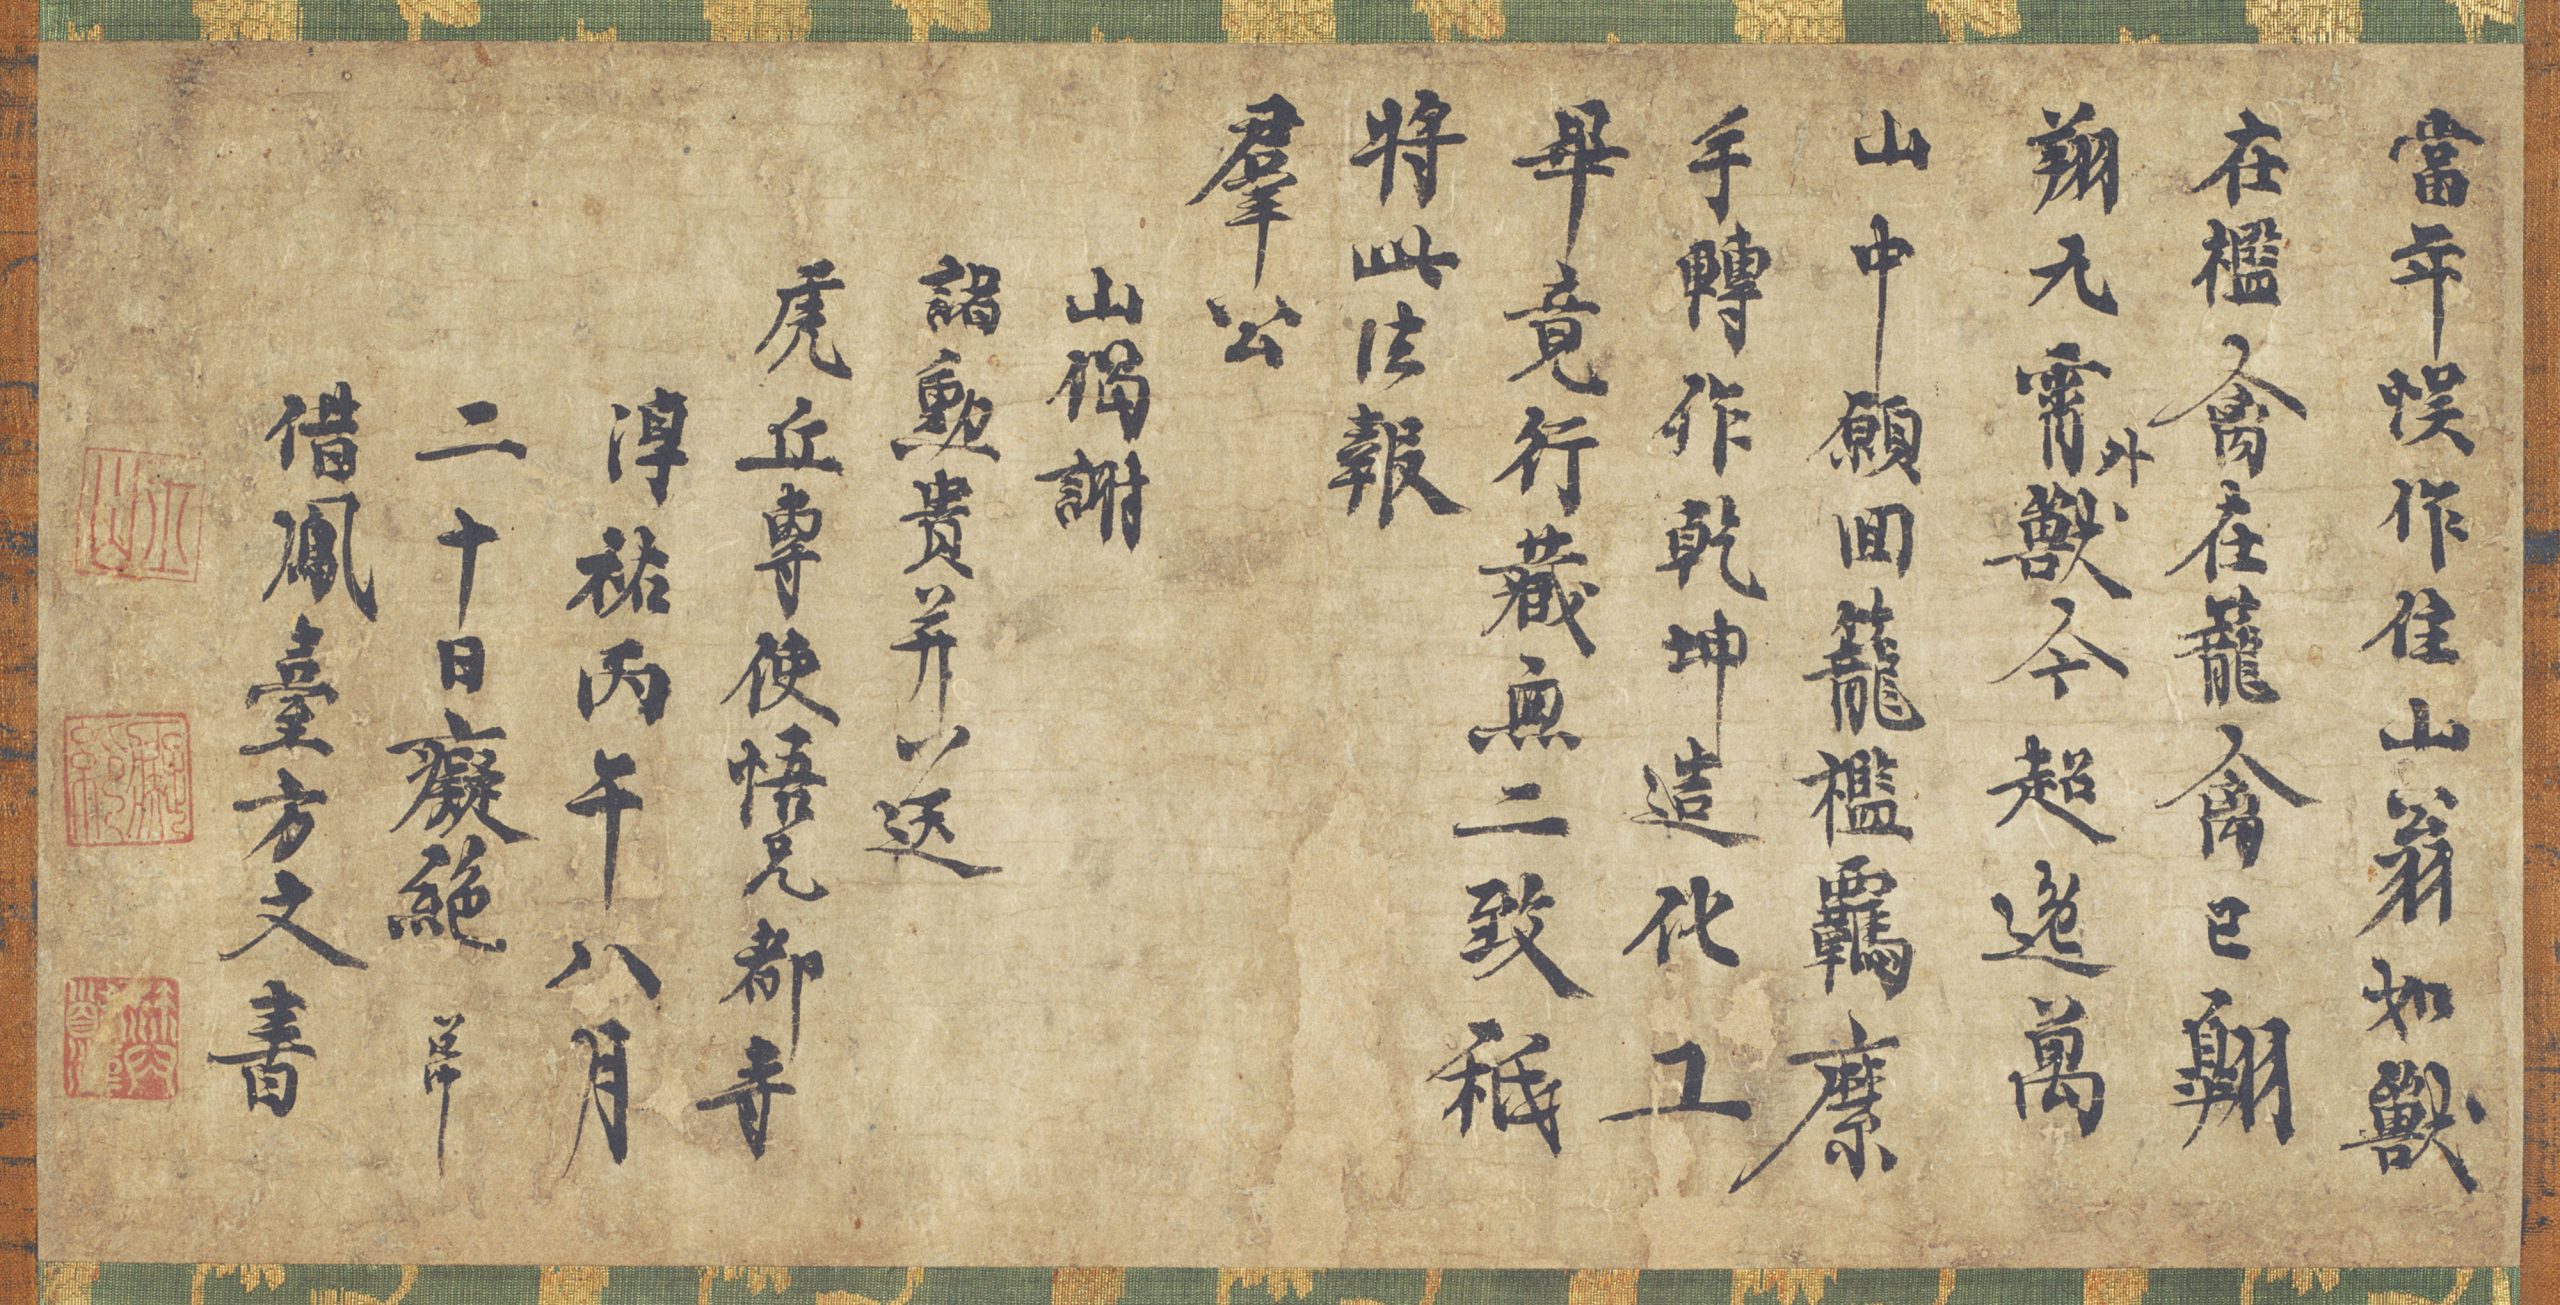 當年悮作住山翁如獸
在檻禽在籠禽已翱
翔九霄外獸今超逸萬
山中願回籠檻羈縻
手轉作乾坤造化工
畢竟行藏無二致秖
將此法報
羣公
山偈謝
諸勳貴并送
虎丘專使悟兄都寺
淳祐丙午八月
二十日癡絕
借鳳臺方丈書